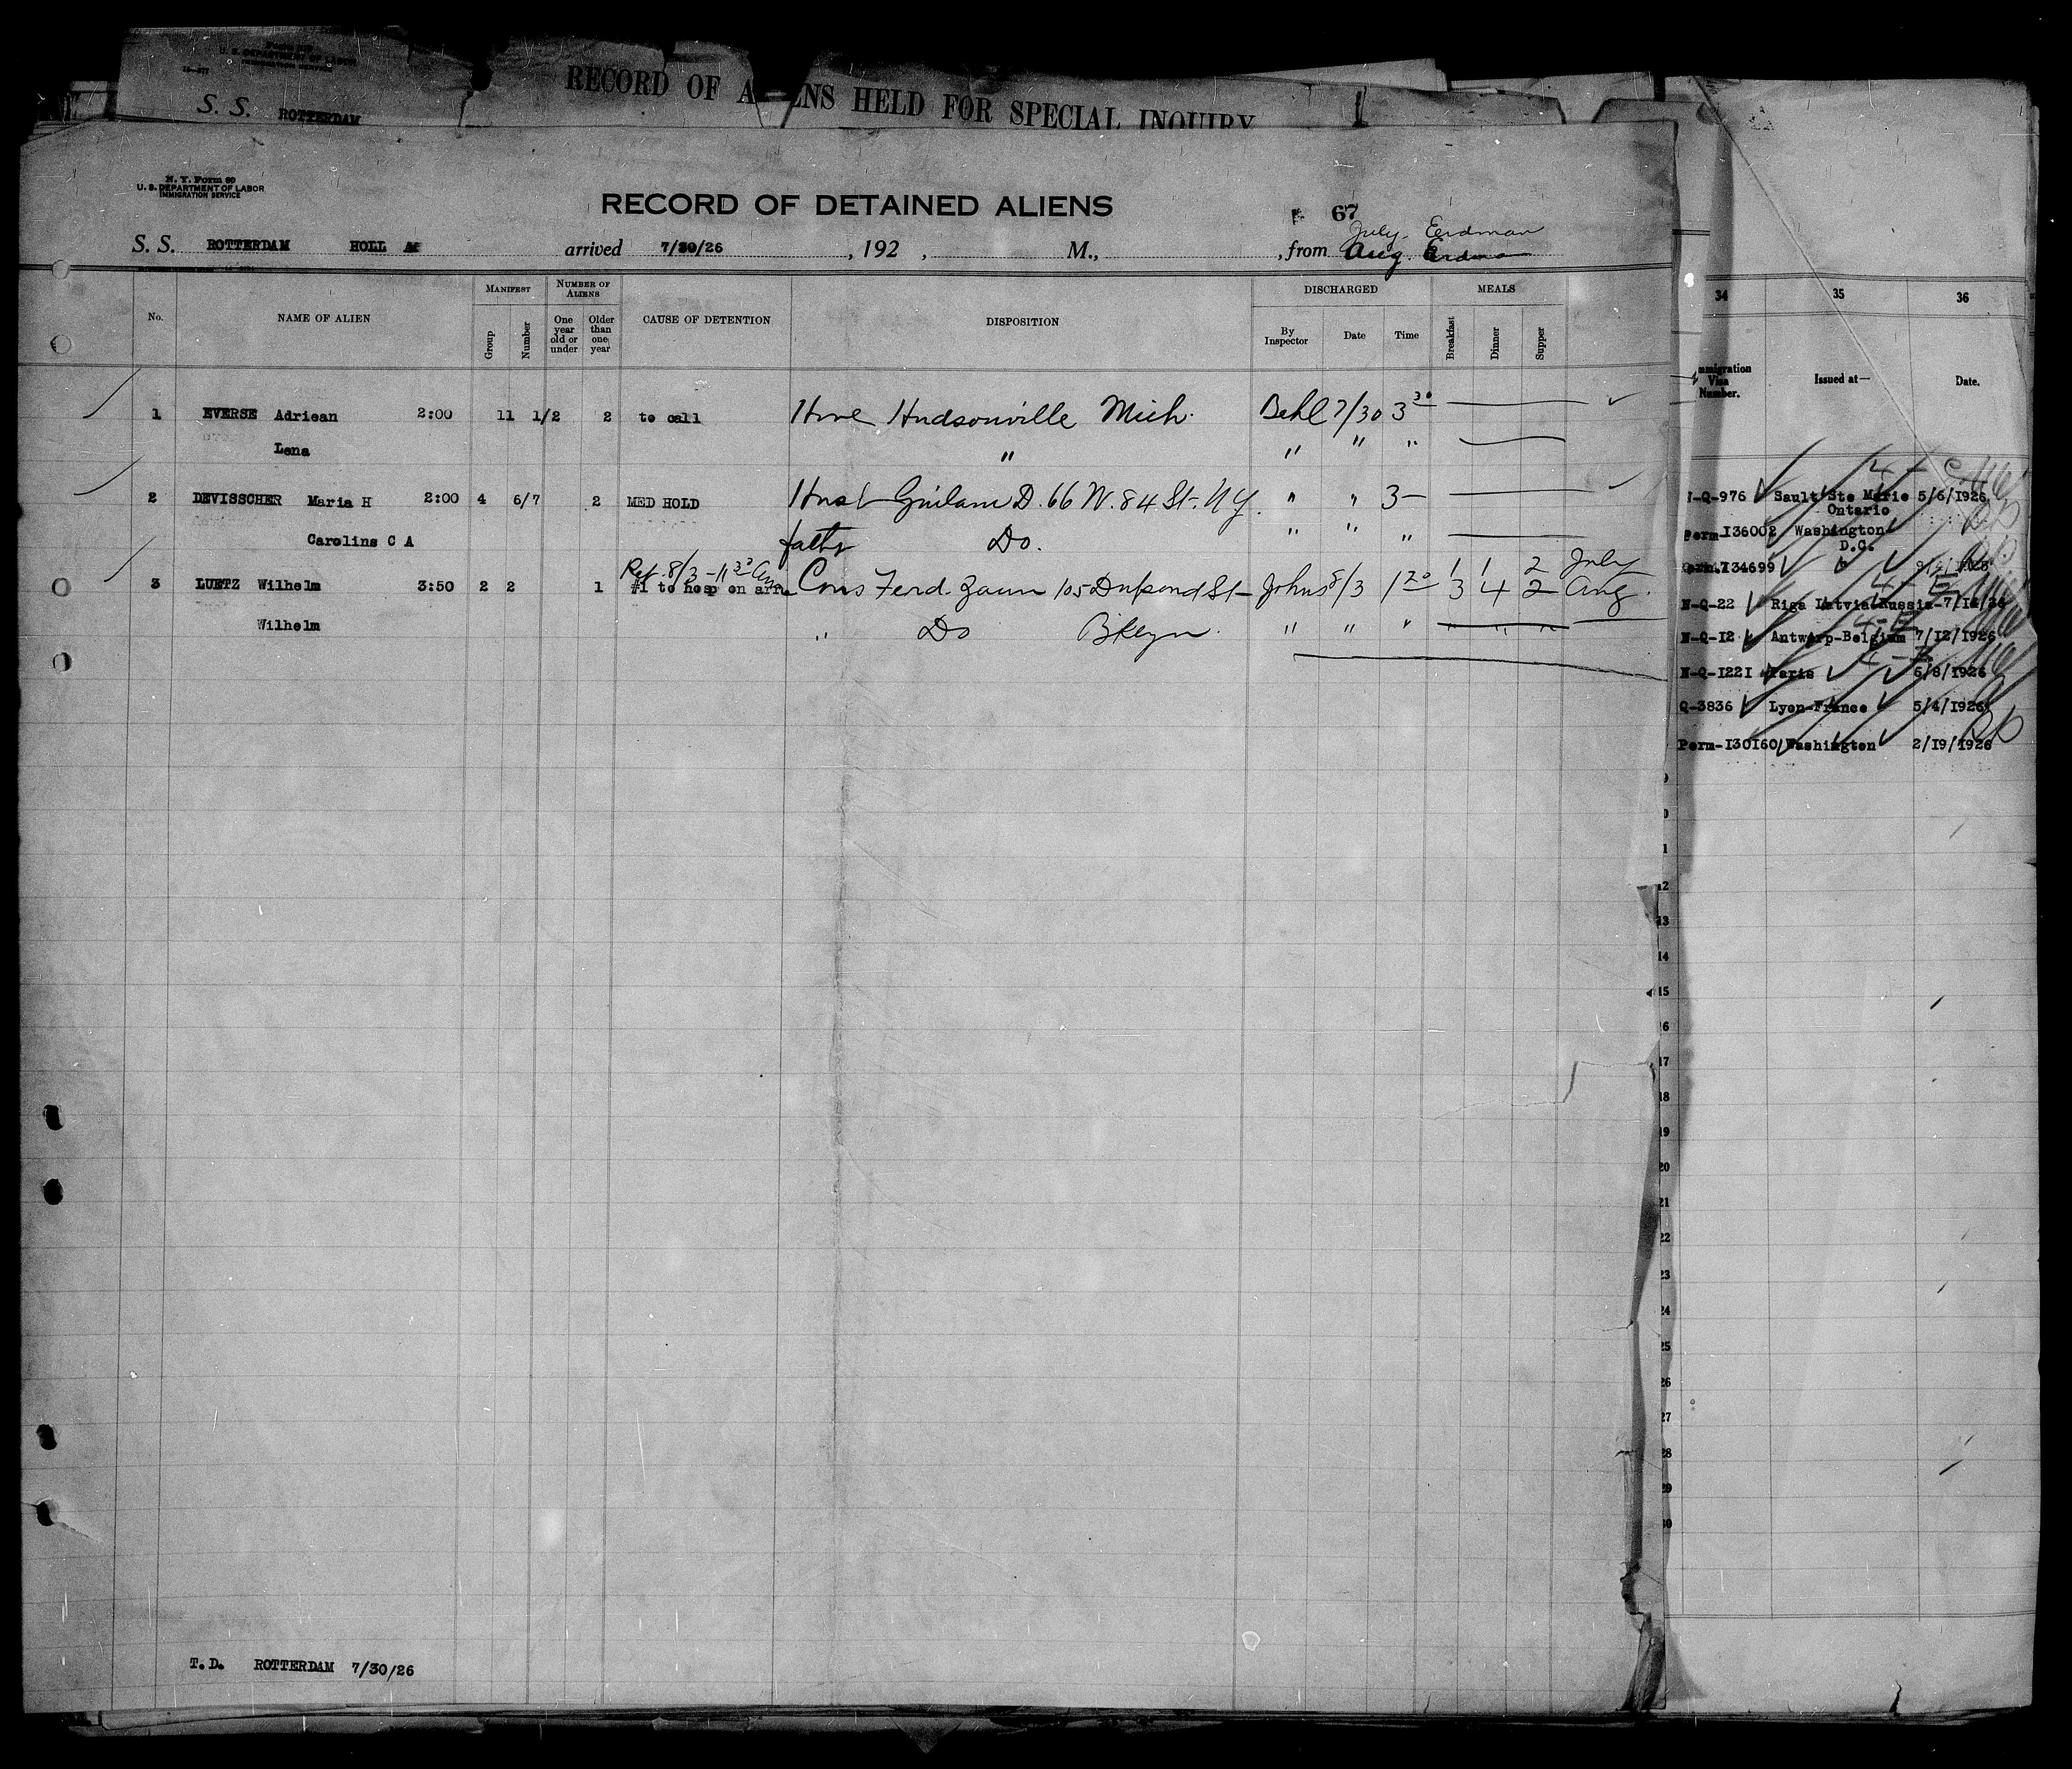 U. S. DEPARTMENT OF LABOR
IMMIGRATION SERVICE
S. S. ROTTERDAM
RECORD OF ALIENS HELD FOR SPECIAL INQUIRY
N. Y. Form 60
U. S. DEPARTMENT OF LABOR
IMMIGRATION SERVICE
RECORD OF DETAINED ALIENS
67
July. Eerdman
S. S. ROTTERDAM HOLL AM arrived 7/30/26, 192 , M., , from Aug.
No. NAME OF ALIEN MANIFEST Group Number NUMBER OF ALIENS One year old or under Older than one year CAUSE OF DETENTION DISPOSITION DISCHARGED By Inspector Date Time MEALS Breakfast Dinner Supper
1 EVERSE Adriean 2:00 11 1/2 2 to call Home Hudsonville Mich. Behl 7/30 3 30
Lena " " " "
2 DEVISSCHER Maria H 2:00 4 6/7 2 MED HOLD Husb Guilam D. 66 W. 84 St. N Y. " " 3
Carolina C A father Do. " " "
Ret. 8/3 - 11 30 Am 1 1 2 July
3 LUETZ Wilhelm 3:50 2 2 1 #1 to hosp on arr. Cous Ferd. Zaun 105 Dupond St Johns 8/3 1 20 3 4 2 Aug.
Wilhelm " Do Bklyn. " " " " " "
T.D. ROTTERDAM 7/30/26
34 35 36
Immigration Visa Number. Issued at— Date.
N-Q-976 Sault Ste Marie Ontario 5/6/1926
Perm-136002 Washington D.C.
Perm.134699 "
N-Q-22 Riga Latvia Russia-7/14/26
N-Q-12 Antwerp-Belgium 7/12/1926
N-Q-1221 Paris 6/8/1926
Q-3836 Lyon-France 5/4/1926
Perm-130160 Washington 2/19/1926
12
13
14
15
16
17
18
19
20
21
22
23
24
25
26
27
28
29
30